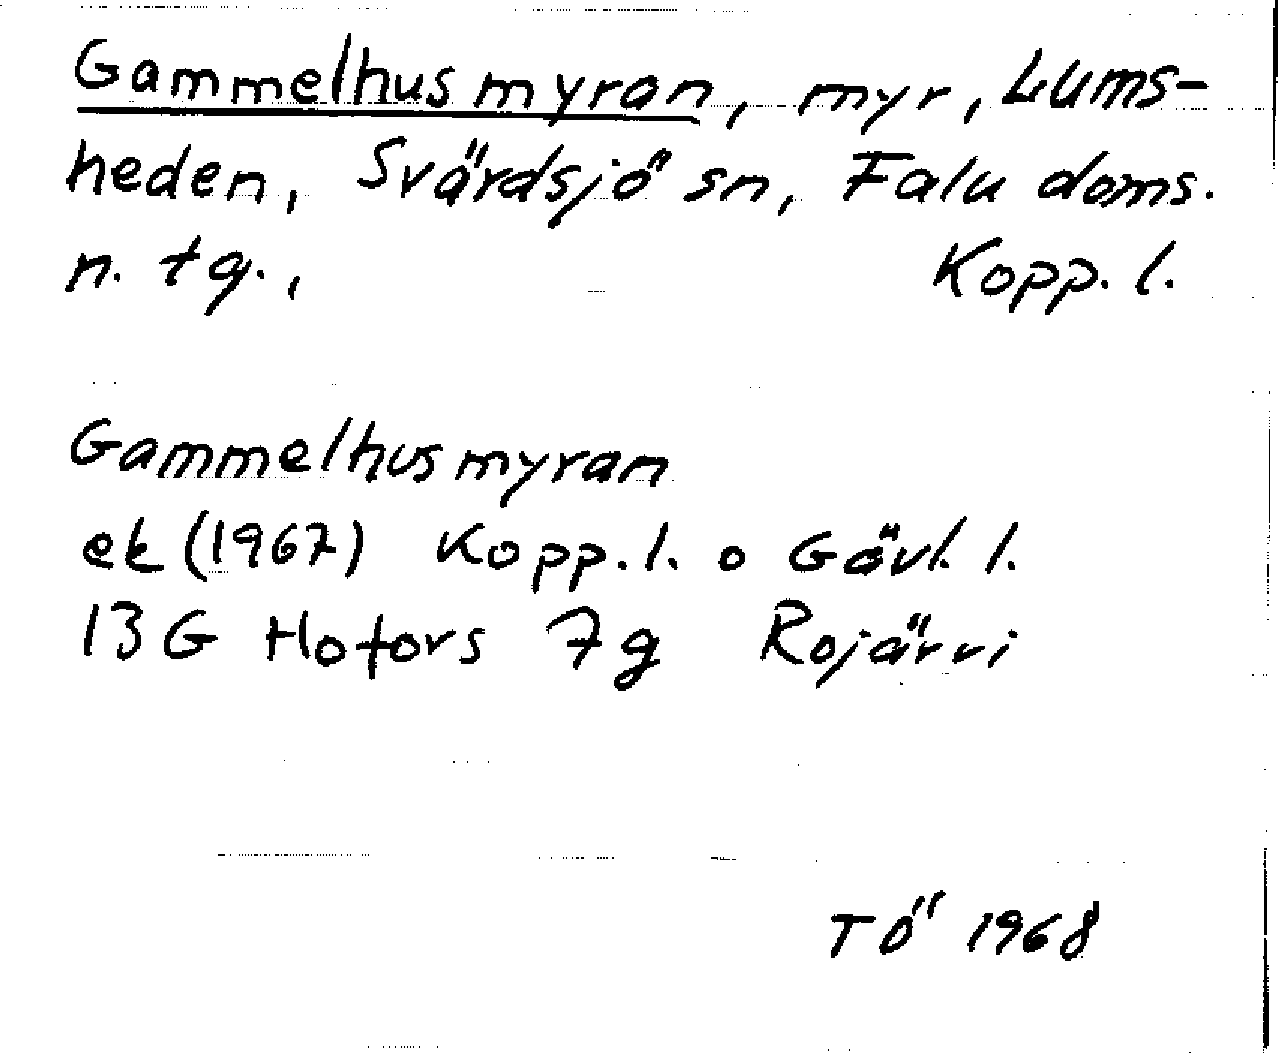 Gammelhusmyran, myr, Lums-
heden, Svärdsjö sn, Falu doms.
n. tg., Kopp. l.
Gammelhusmyran
ek (1967) Kopp. l. o Gävl. l.
13G Hofors 7g Rojärvi
TÖ 1968